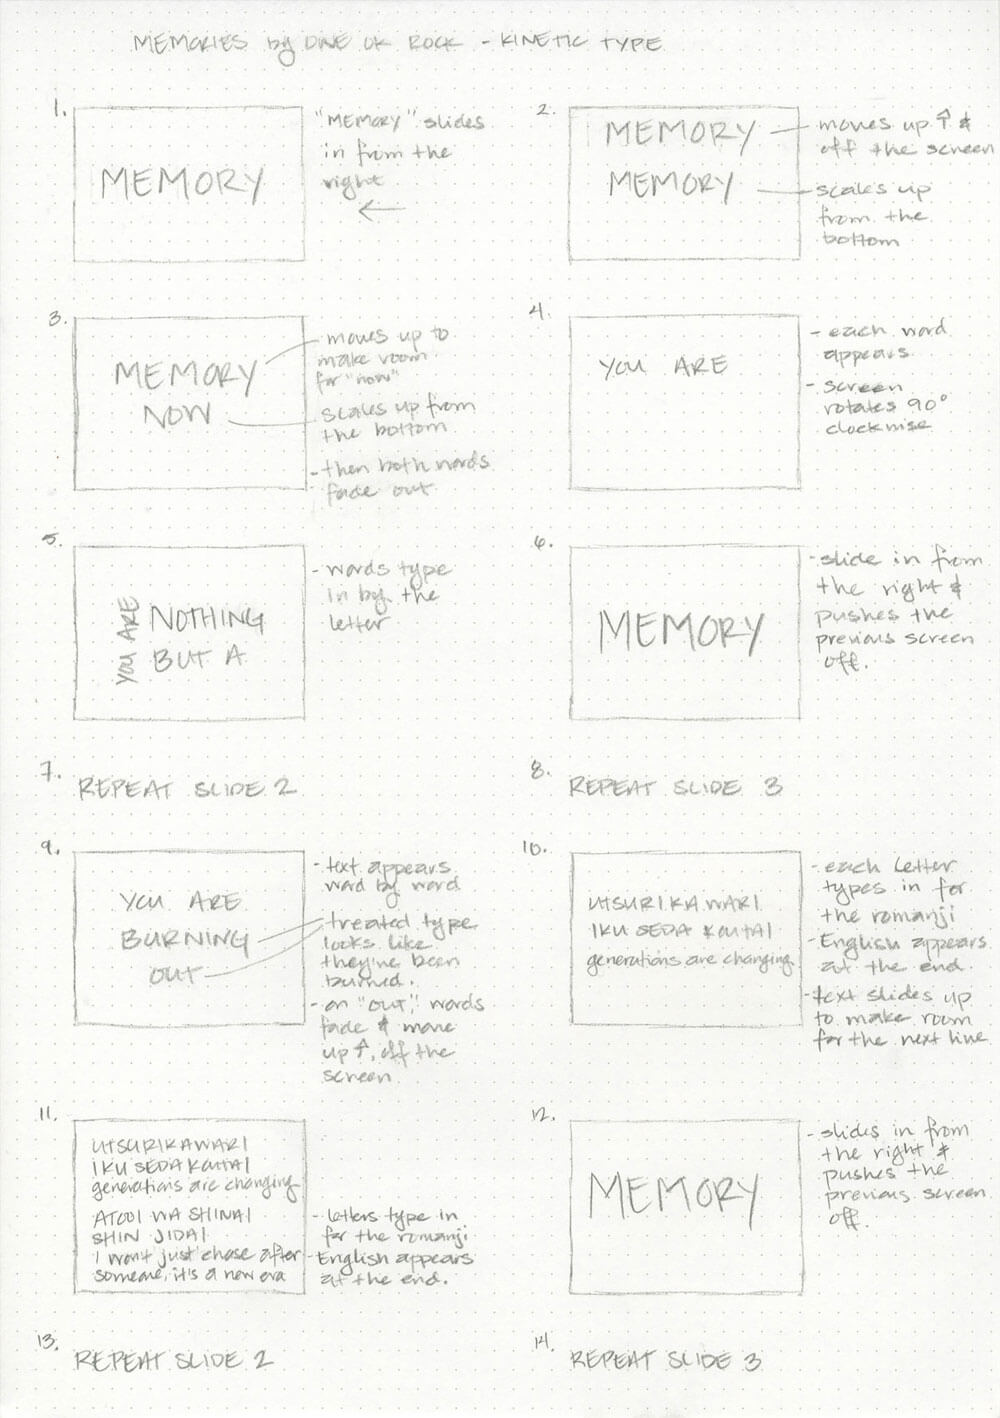 MEMORIES by ONE OK ROCK - KINETIC TYPE
1.
MEMORY
"MEMORY" slides
in from the
right
←
2.
MEMORY
MEMORY
moves up ↑ &
off the screen
scales up
from the
bottom
3.
MEMORY
NOW
- moves up to
make room
for "now"
scales up from
the bottom
- then both words
fade out
4.
YOU ARE
- each word
appears
- screen
rotates 90°
clockwise
5.
YOU ARE
NOTHING
BUT A
- words type
in by the
letter
6.
MEMORY
- slide in from
the right &
pushes the
previous screen
off.
7.
REPEAT SLIDE 2
8.
REPEAT SLIDE 3
9.
YOU ARE
BURNING
OUT
- text appears
word by word
- treated type
looks like
they've been
burned.
- on "out," words
fade & move
up ↑, off the
screen
10.
UTSURIKAWARI
IKU SEDA KOUTAI
generations are changing
- each letter
types in for
the romanji
- English appears
at the end.
- text slides up
to make room
for the next line
11.
UTSURIKAWARI
IKU SEDA KOUTAI
generations are changing
ATOOI WA SHINAI
SHIN JIDAI
I won't just chase after
someone, it's a new era
- letters type in
for the romanji
- English appears
at the end.
12.
MEMORY
- slides in from
the right &
pushes the
previous screen
off.
13.
REPEAT SLIDE 2
14.
REPEAT SLIDE 3